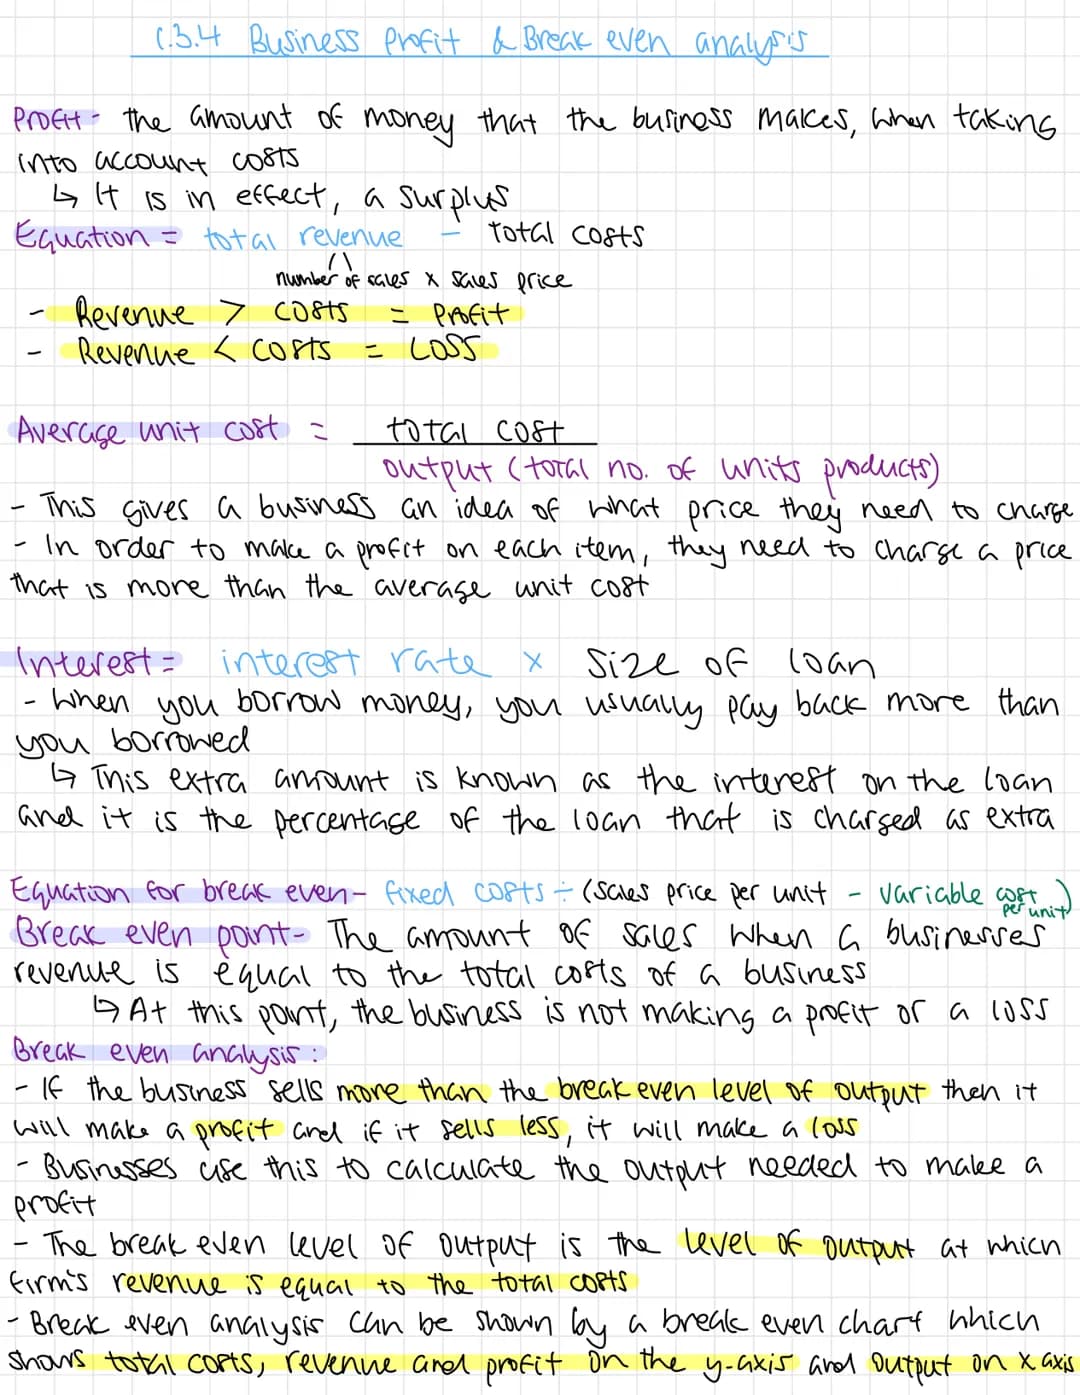 1.3.4 Business Profit & Break even analysis
Profit - the amount of money that the business makes, when taking
into account costs
↳ It is in effect, a surplus
Equation = total revenue - total costs
number of sales x sales price
- Revenue > costs = Profit
- Revenue < costs = LOSS
Average unit cost = total cost
output (total no. of units products)
- This gives a business an idea of what price they need to charge
- In order to make a profit on each item, they need to charge a price
that is more than the average unit cost
Interest = interest rate x size of loan
- When you borrow money, you usually pay back more than
you borrowed
↳ This extra amount is known as the interest on the loan
and it is the percentage of the loan that is charged as extra
Equation for break even - fixed costs ÷ (sales price per unit - variable cost per unit)
Break even point - The amount of sales when a businesses
revenue is equal to the total costs of a business
↳ At this point, the business is not making a profit or a loss
Break even analysis:
- If the business sells more than the break even level of output then it
will make a profit and if it sells less, it will make a loss
- Businesses use this to calculate the output needed to make a
profit
- The break even level of output is the level of output at which
firm's revenue is equal to the total costs
- Break even analysis can be shown by a break even chart which
shows total costs, revenue and profit on the y-axis and output on x axis